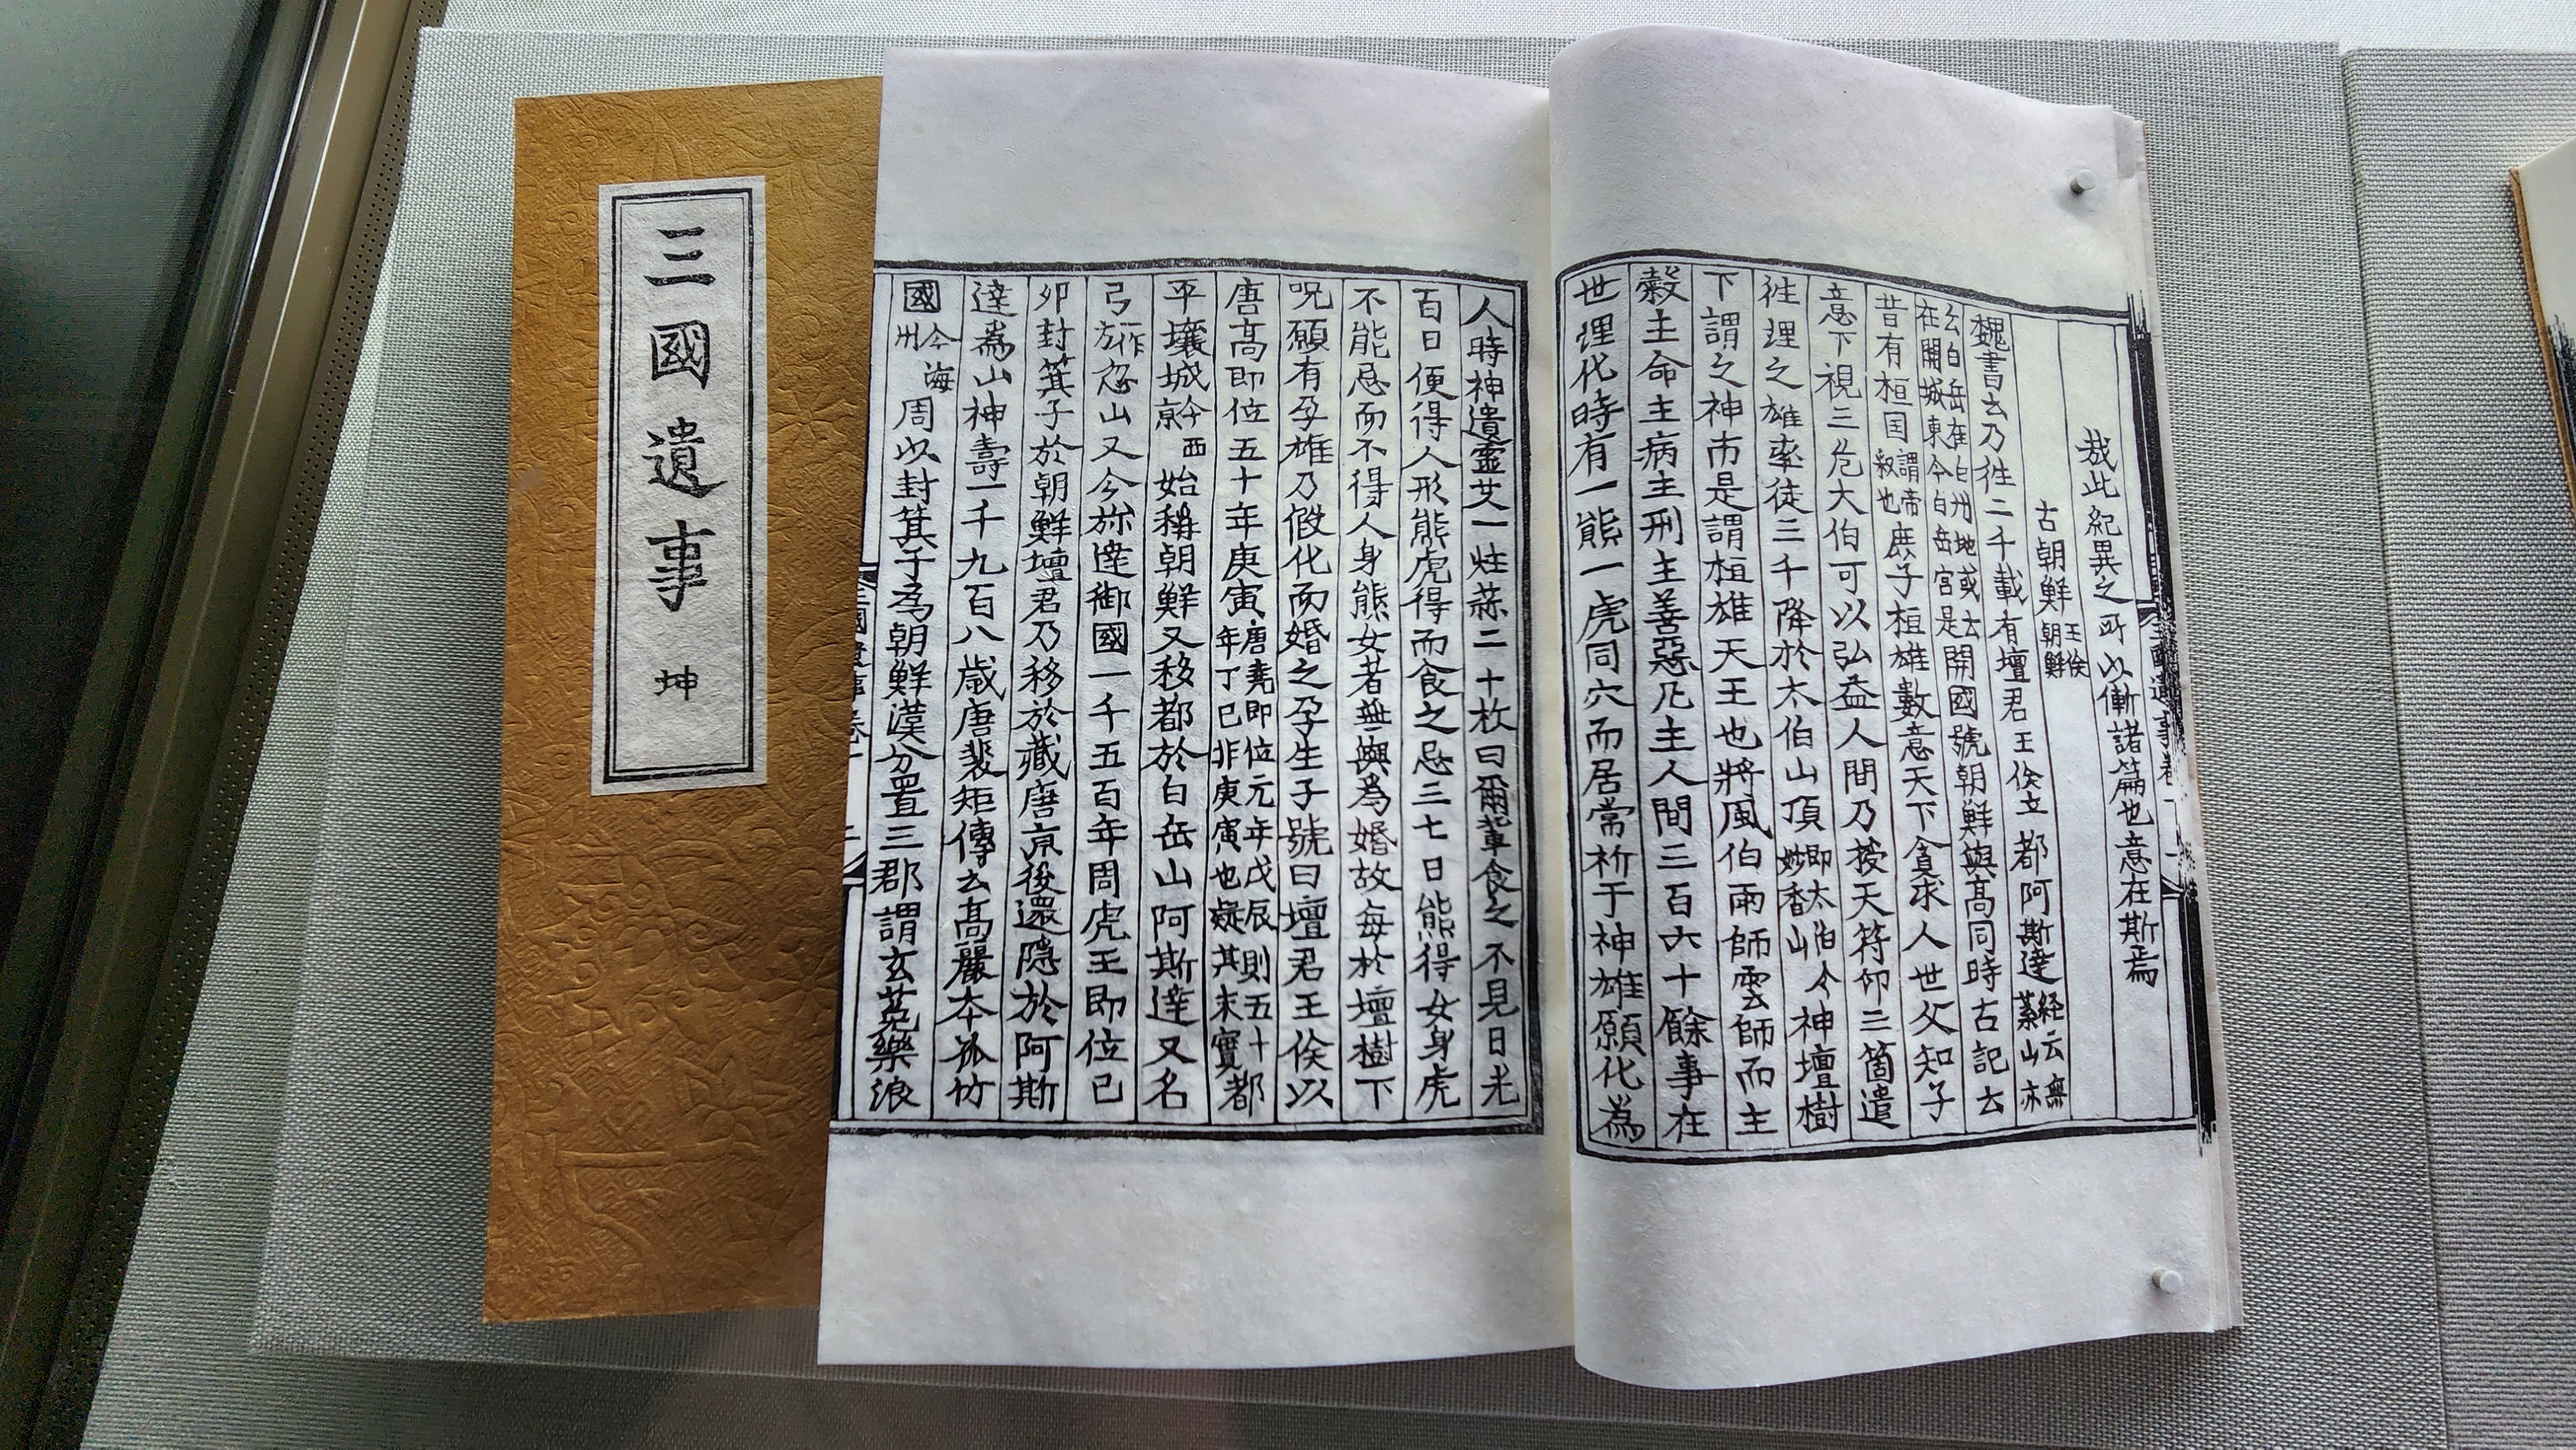 哉此紀異之所以慚諸篇也意在斯焉
古朝鮮王倹朝鮮
魏書云乃徃二千載有壇君王倹立都阿斯達経云無葉山亦
云白岳在白州地或云在開城東今白岳宮是開國號朝鮮與高同時古記云
昔有桓国謂帝釈也庶子桓雄數意天下貪求人世父知子
意下視三危大伯可以弘益人間乃授天符印三箇遣
徃理之雄率徒三千降於太伯山頂即太伯今妙香山神壇樹
下謂之神市是謂桓雄天王也將風伯雨師雲師而主
穀主命主病主刑主善惡凡主人間三百六十餘事在
世理化時有一熊一虎同穴而居常祈于神雄願化為
人時神遺靈艾一炷蒜二十枚曰爾輩食之不見日光
百日便得人形熊虎得而食之忌三七日熊得女身虎
不能忌而不得人身熊女者無與為婚故每於壇樹下
呪願有孕雄乃假化而婚之孕生子號曰壇君王倹以
唐高即位五十年庚寅唐堯即位元年戊辰則五十年丁巳非庚寅也疑其未實都
平壤城今西京始稱朝鮮又移都於白岳山阿斯達又名
弓一作方忽山又今旀達御國一千五百年周虎王即位己
卯封箕子於朝鮮壇君乃移於藏唐京後還隠於阿斯
達為山神壽一千九百八歳唐裴矩傳云高麗本孤竹
國今海州周以封箕子為朝鮮漢分置三郡謂玄菟樂浪
三國遺事 坤